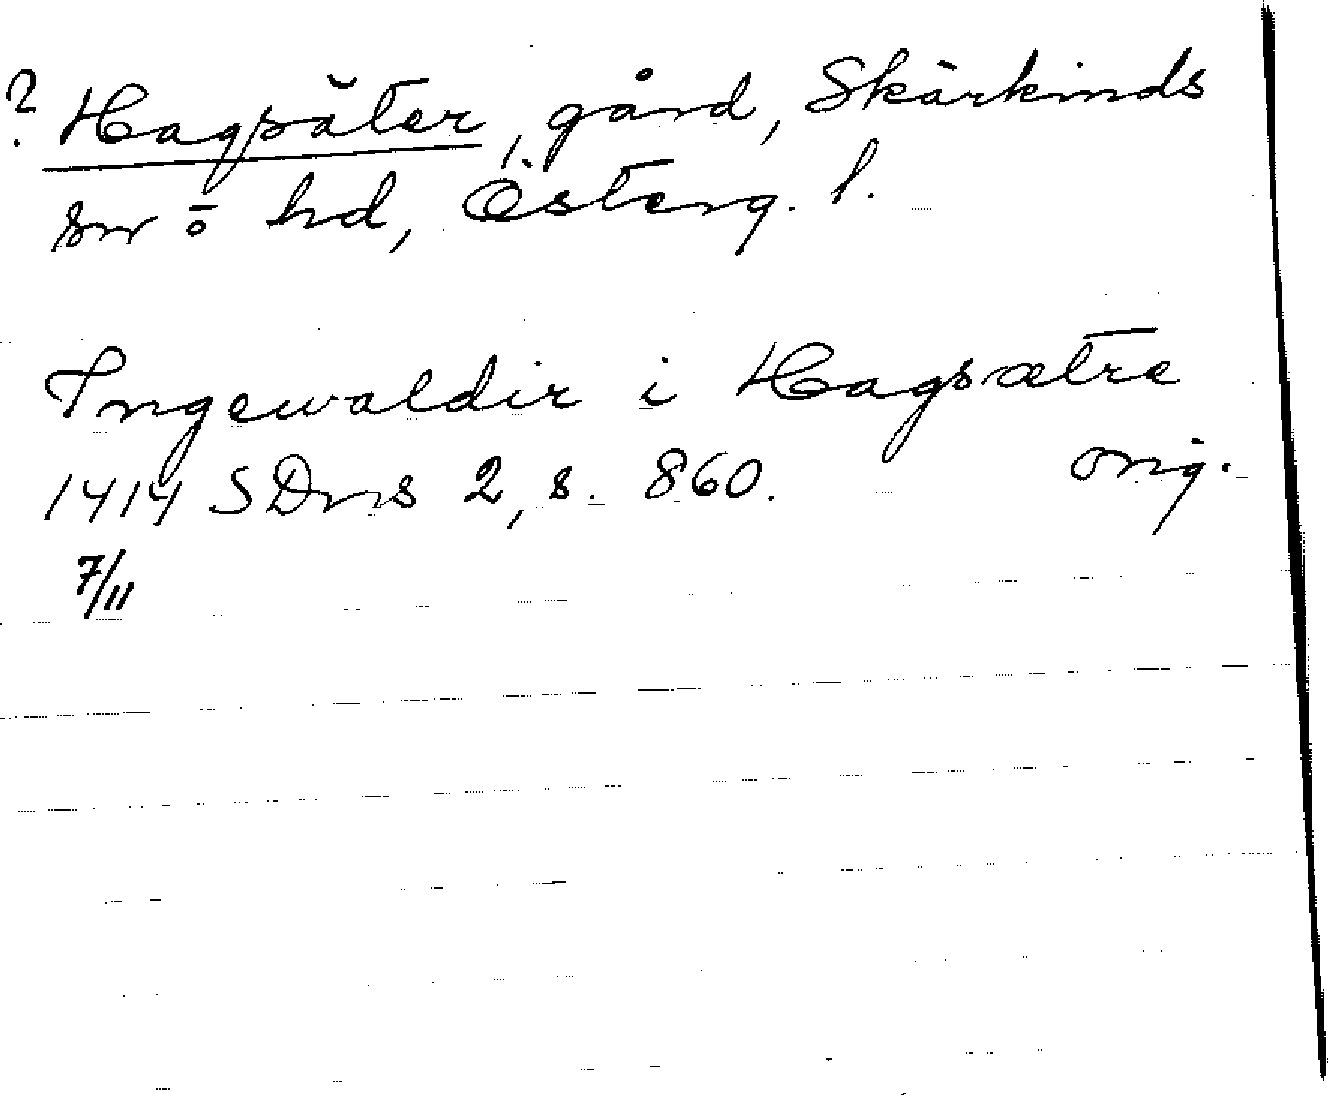 ? Hagsäter, gård, Skärkinds
sn o hd, Österg. l.
Ingewaldir i Hagsætre
1414 SDns 2, s. 860. orig.
7/11